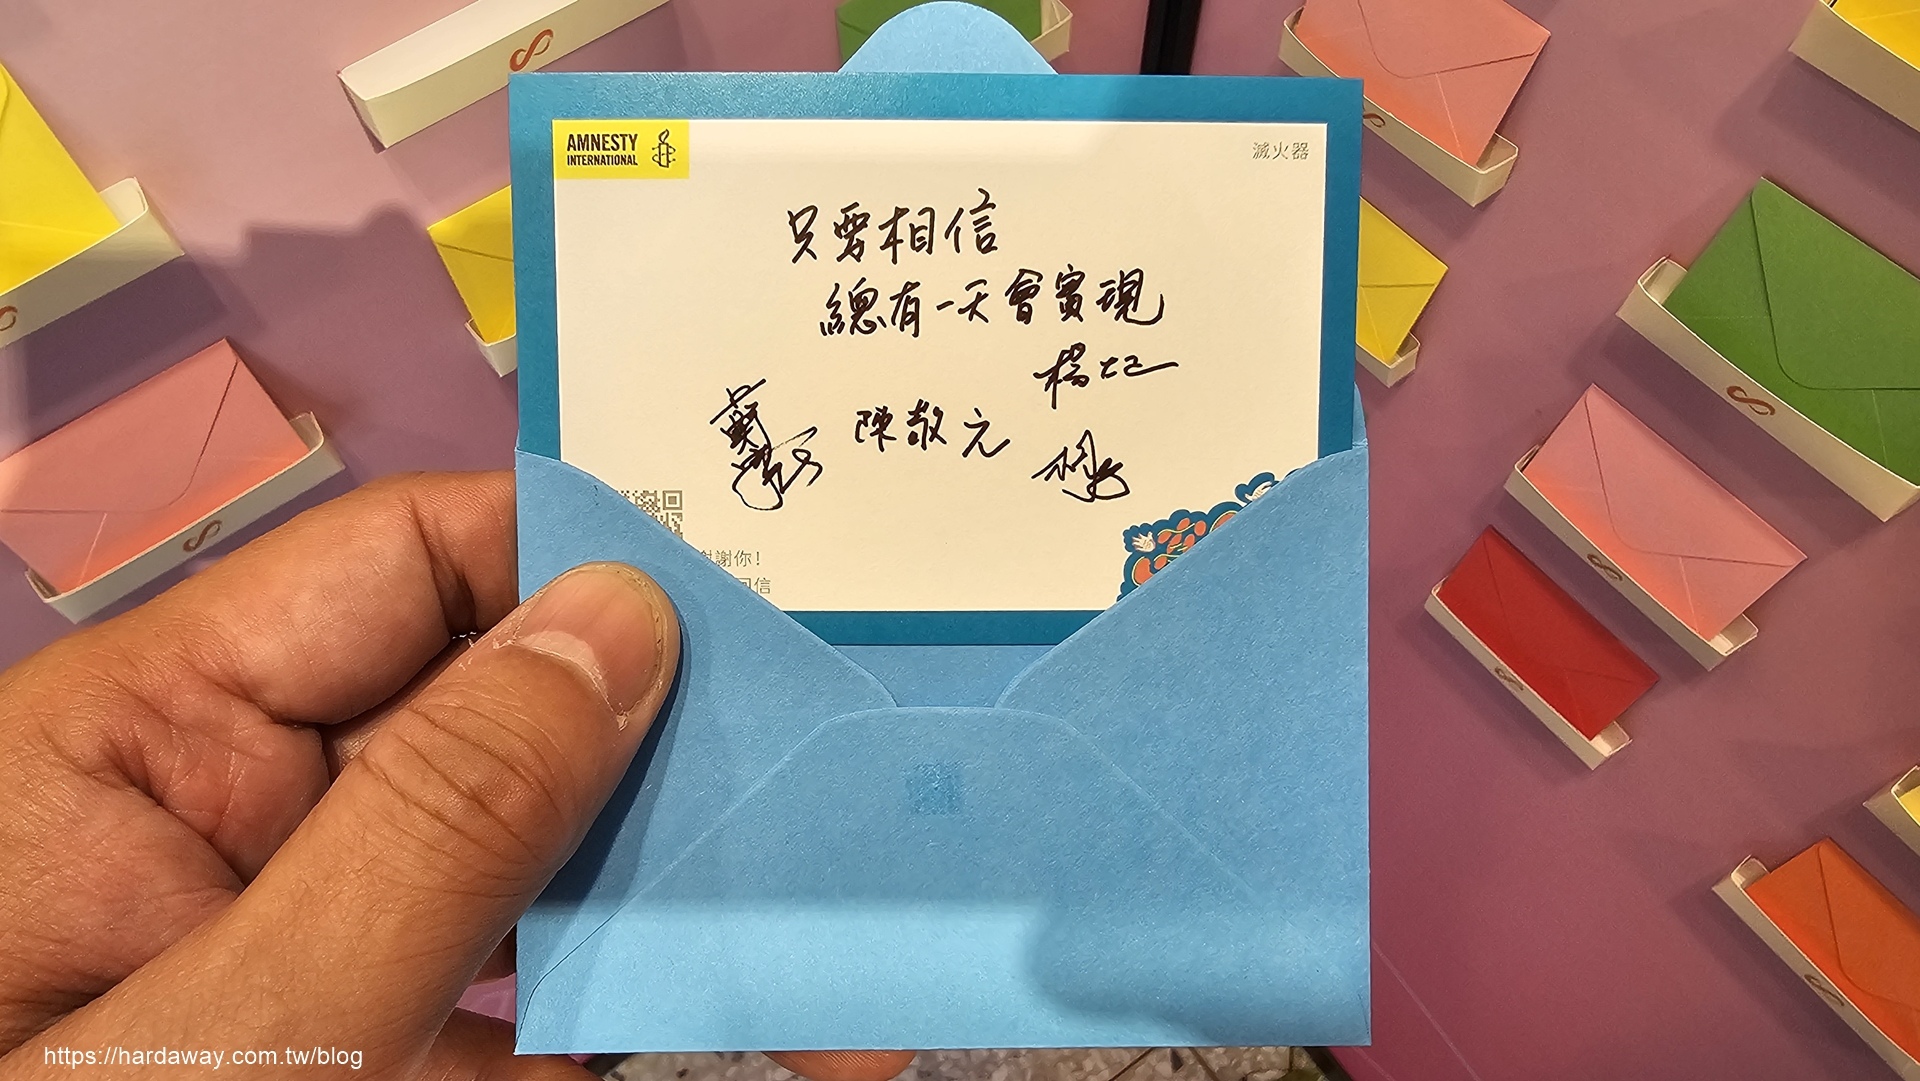 AMNESTY
INTERNATIONAL
滅火器
只要相信
總有一天會實現
楊大正
陳敬元
謝你!
回信
https://hardaway.com.tw/blog